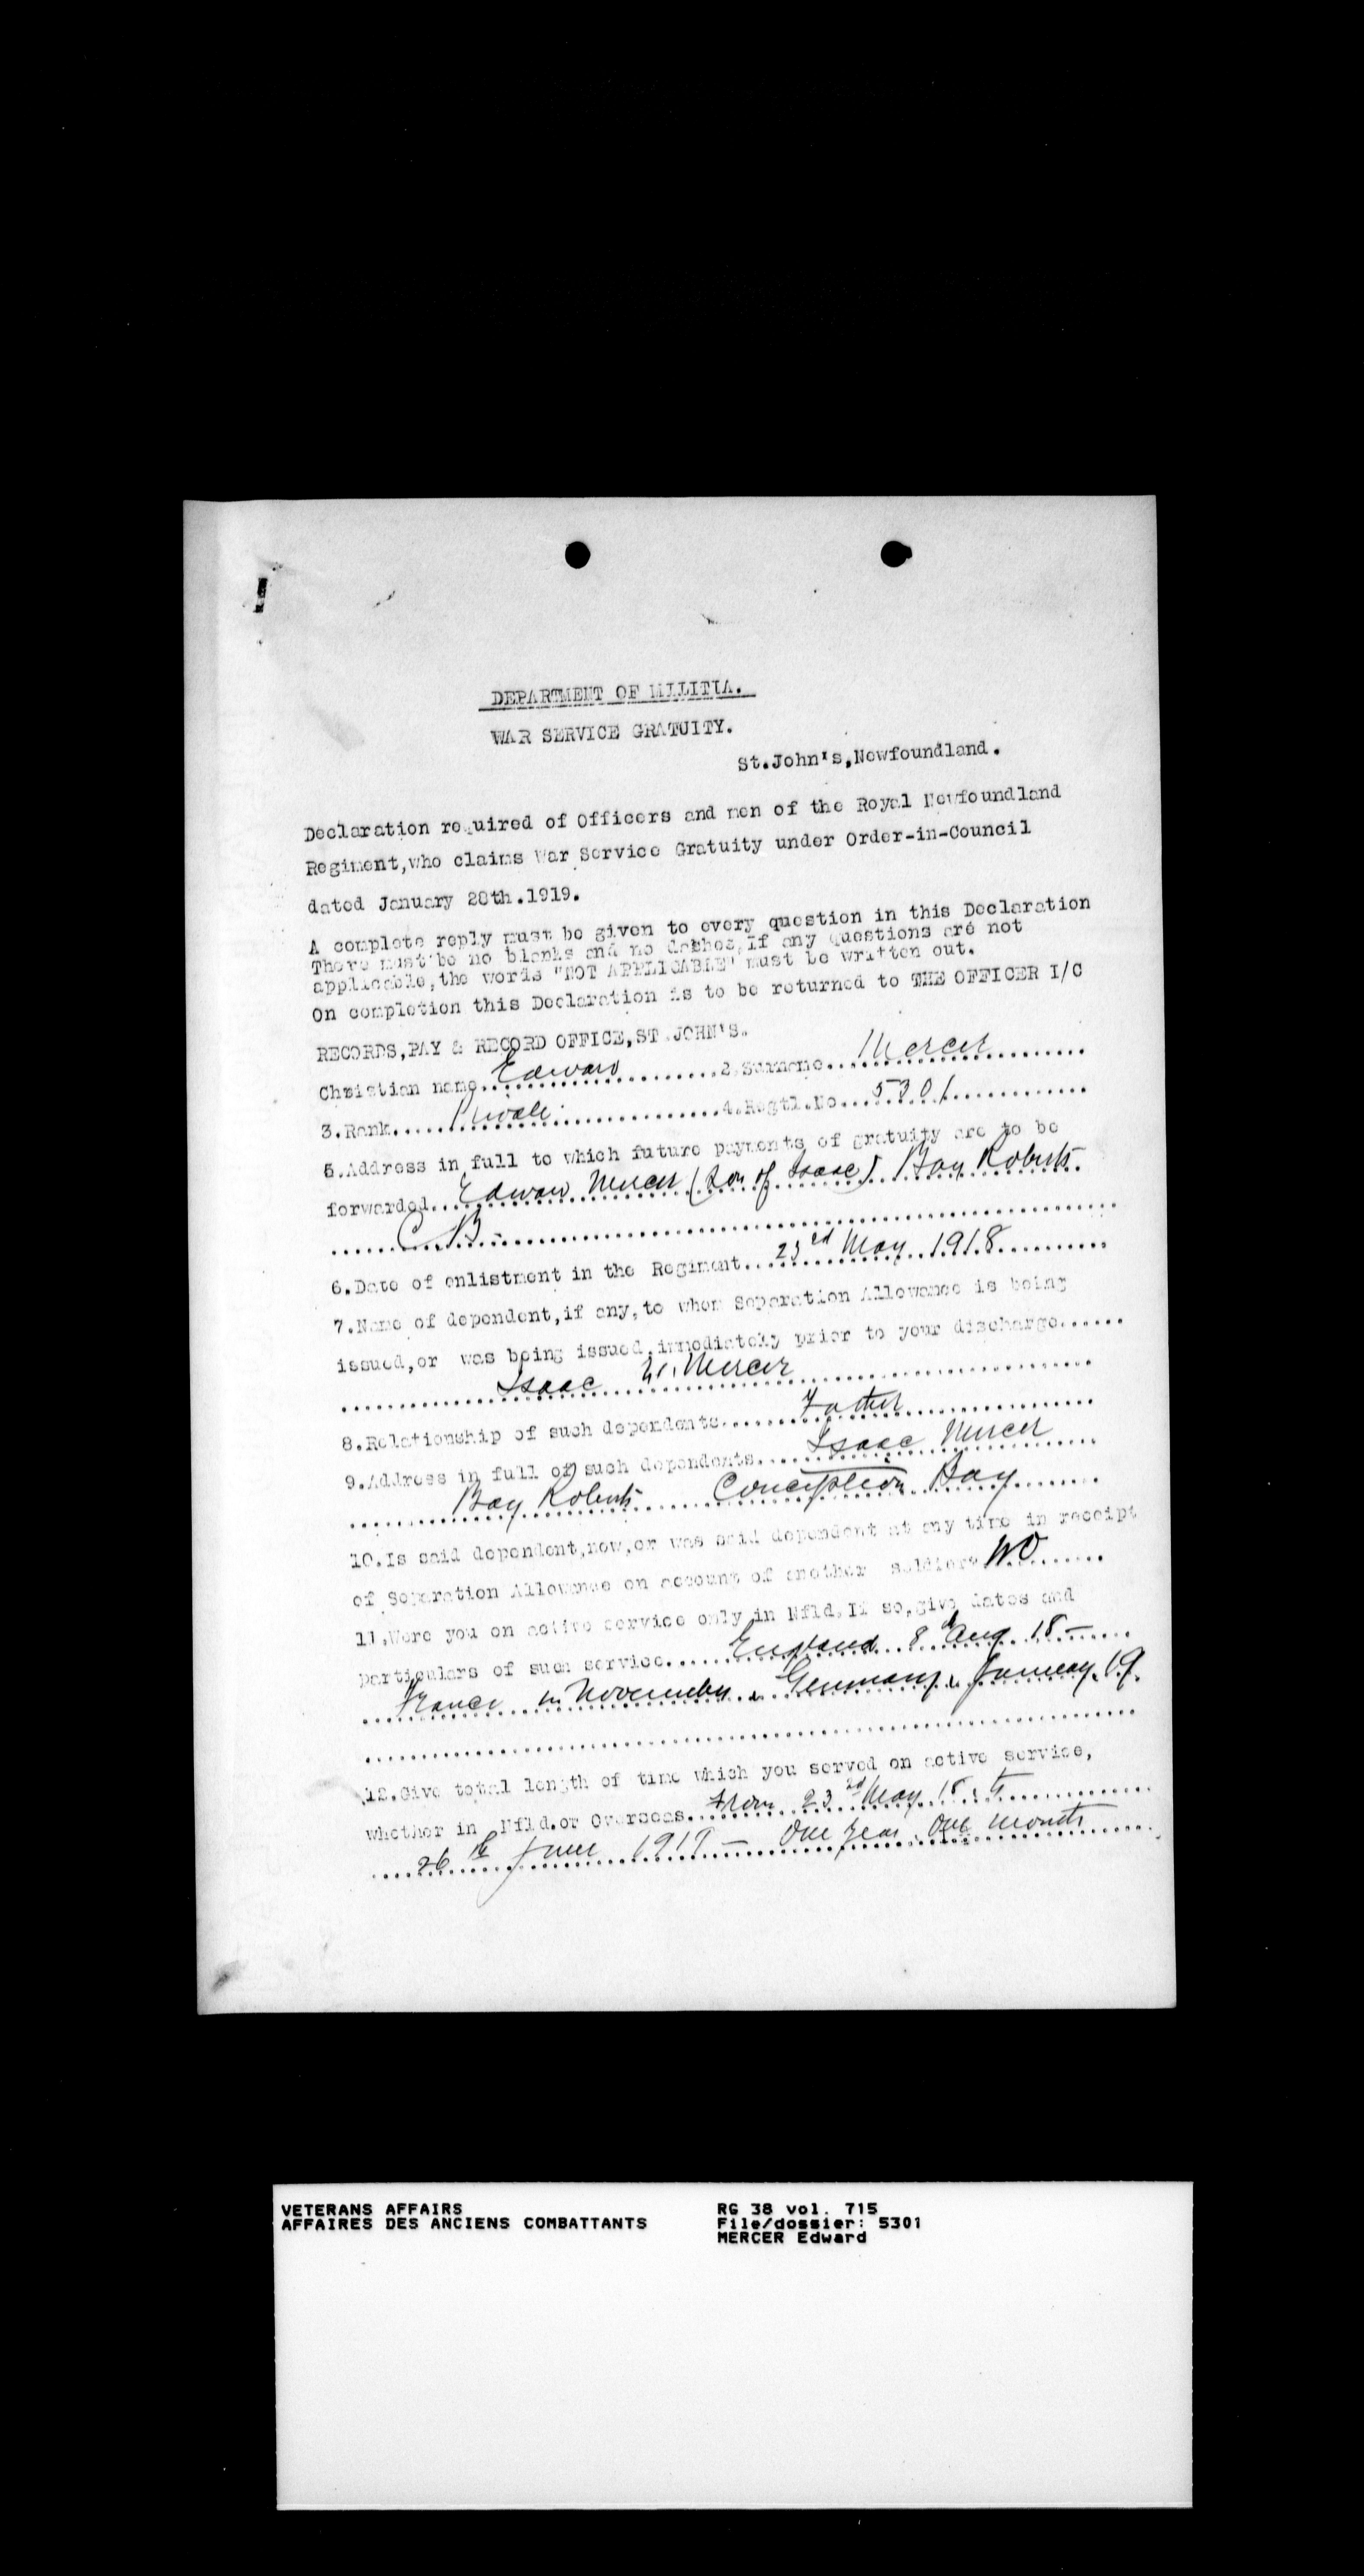 DEPARTMENT OF MILITIA.
WAR SERVICE GRATUITY.
St.John's,Newfoundland.
Declaration required of Officers and men of the Royal Newfoundland
Regiment,who claims War Service Gratuity under Order-in-Council
dated January 28th.1919.
A complete reply must be given to every question in this Declaration
There must be no blanks and no dashes,If any questions are not
applicable,the words "NOT APPLICABLE" must be written out.
On completion this Declaration is to be returned to THE OFFICER I/C
RECORDS,PAY & RECORD OFFICE,ST.JOHN'S.
Christian name....Edward....2.Surname....Mercer....
3.Rank....Private....4.Regtl.No....5301....
5.Address in full to which future payments of gratuity are to be
forwarded....Edward Mercer (Son of Isaac) Bay Roberts.
....C B....
6.Date of enlistment in the Regiment....23rd May 1918....
7.Name of dependent,if any,to whom Separation Allowance is being
issued,or was being issued,immediately prior to your discharge......
....Isaac Mercer....
8.Relationship of such dependents....Father....
9.Address in full of such dependents....Isaac Mercer....
....Bay Roberts Conception Bay....
10.Is said dependent,now,or was said dependent at any time in receipt
of Separation Allowance on account of another soldier?NO....
11.Were you on active service only in Nfld.If so,give dates and
particulars of such service....England 8th Aug 18 –....
....France in November Germany January 19.
12.Give total length of time which you served on active service,
whether in Nfld.or Overseas..From 23rd May 18 to....
....26th June 1919 – One Year One month....
VETERANS AFFAIRS
AFFAIRES DES ANCIENS COMBATTANTS
RG 38 vol. 715
File/dossier: 5301
MERCER Edward